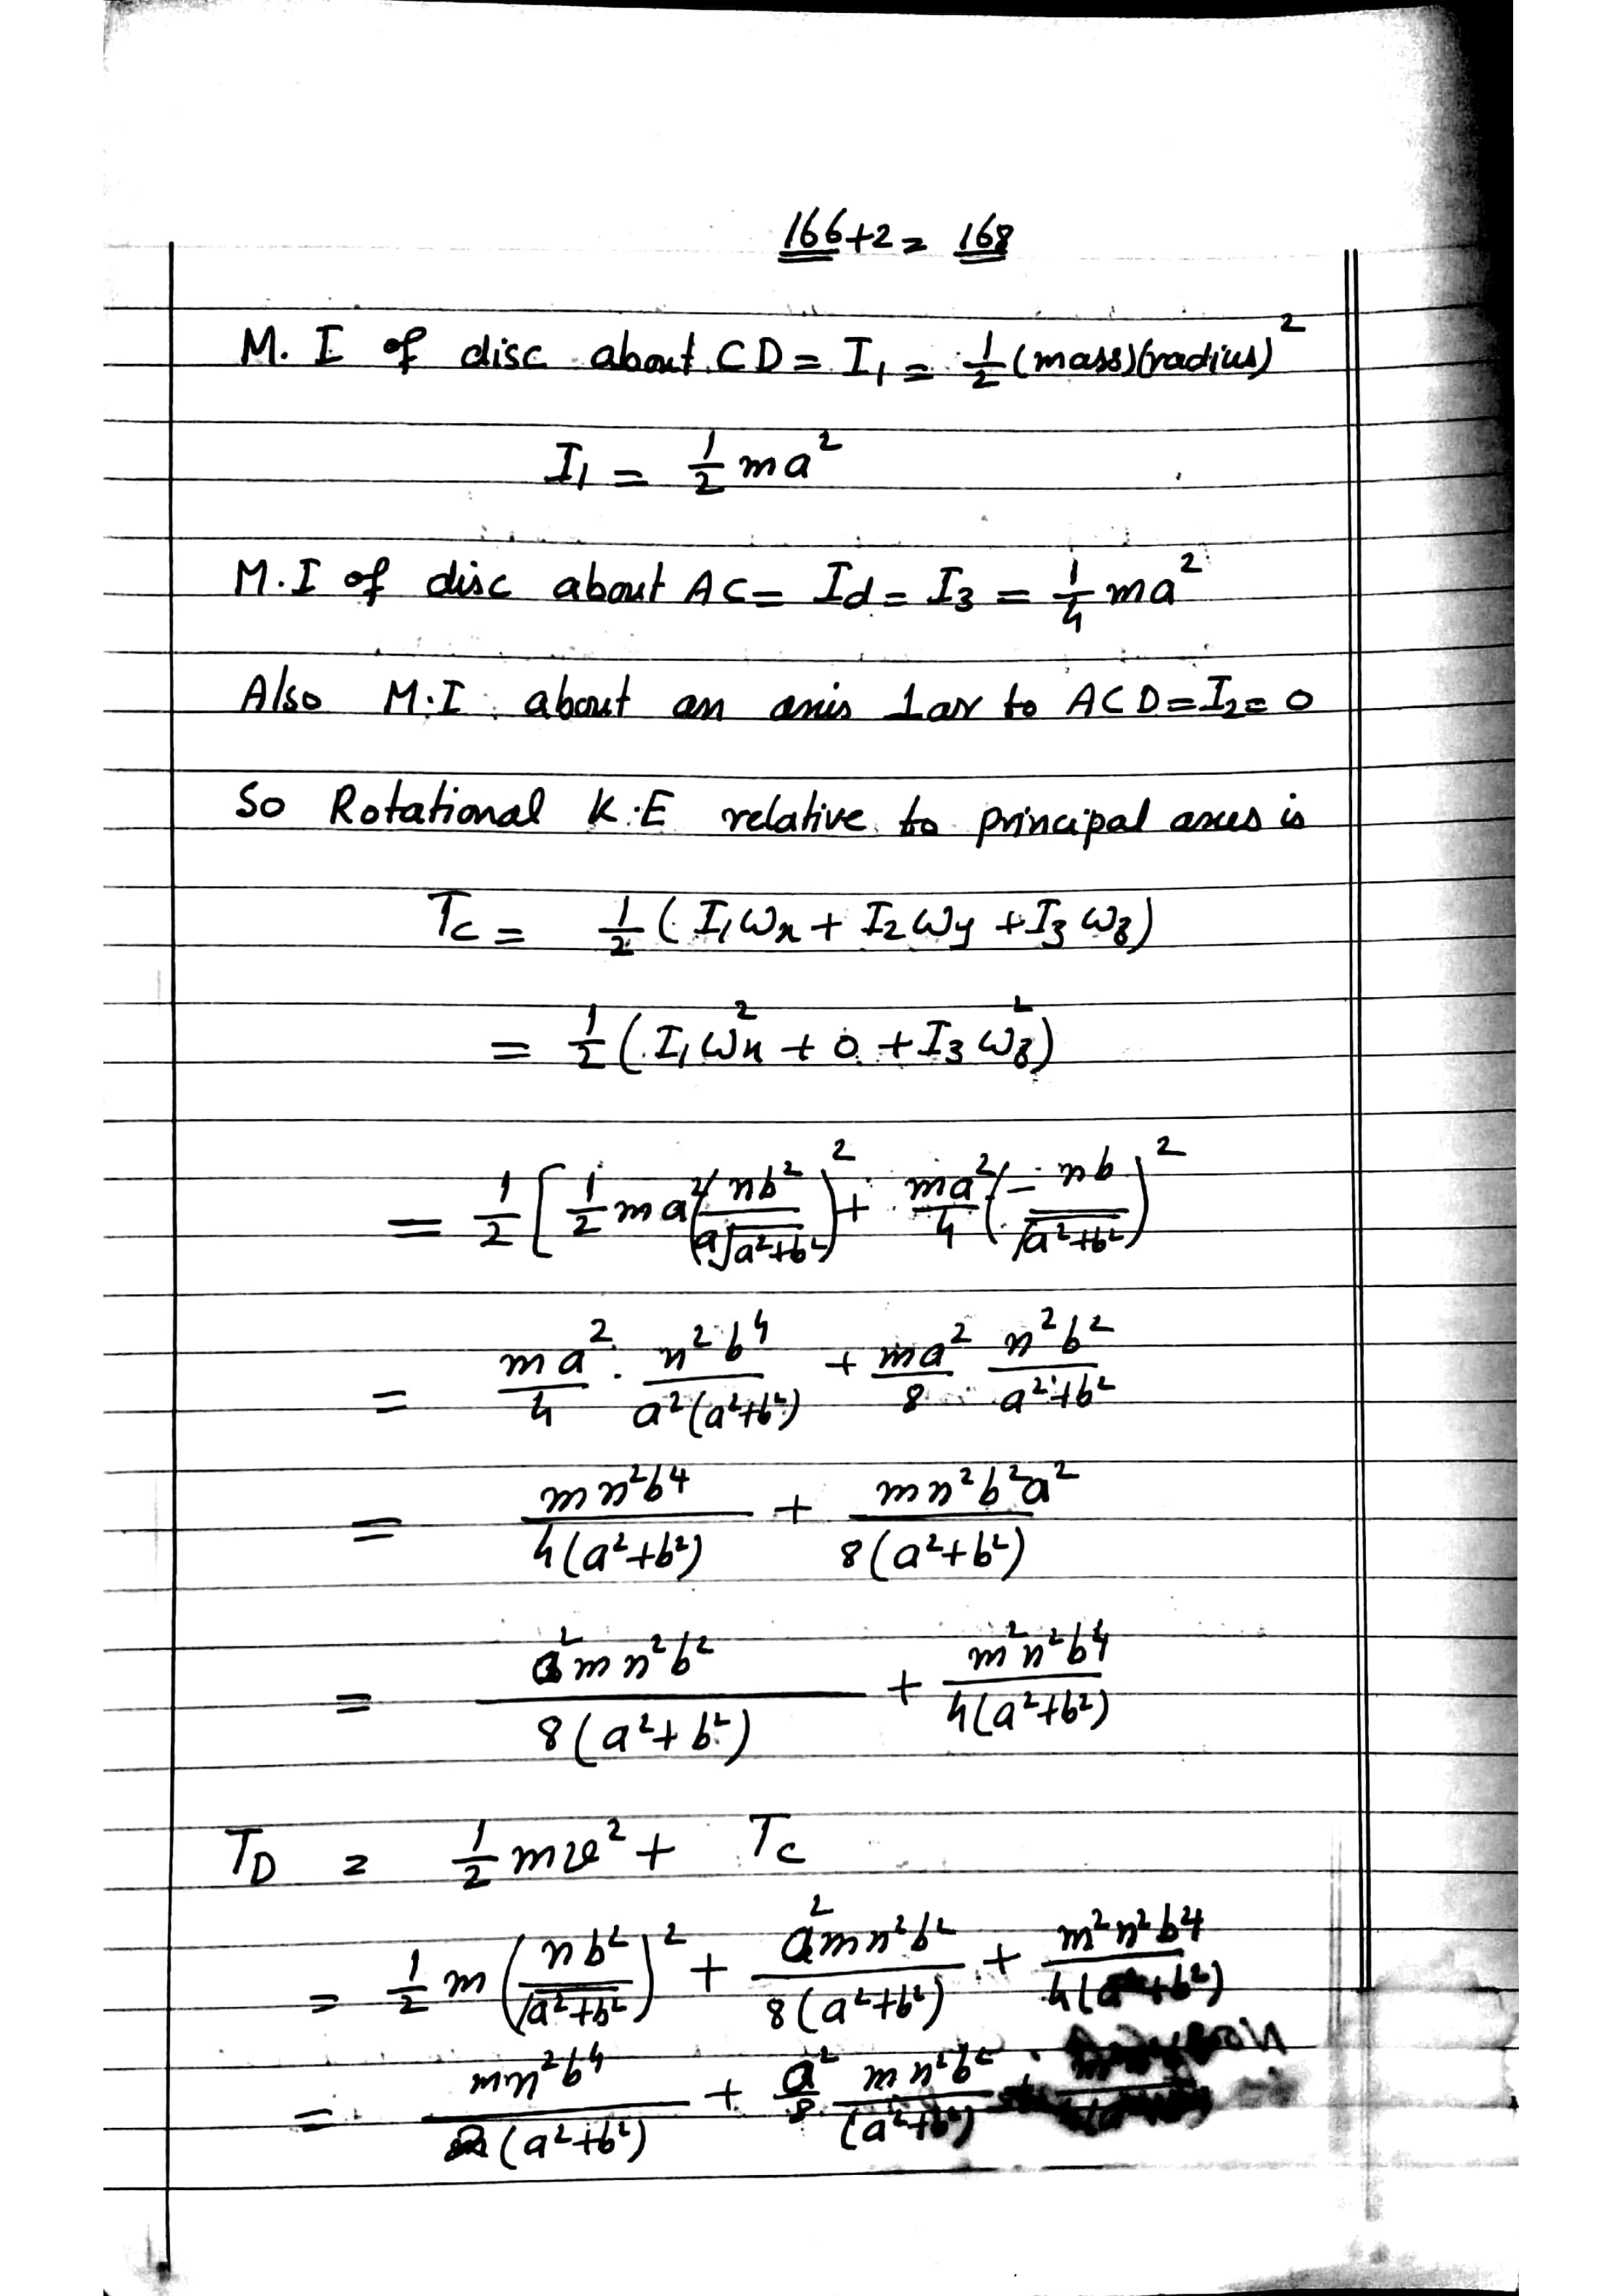 166+2= 168
M. I of disc about CD = I₁ = 1/2 (mass)(radius)²
I₁ = 1/2 ma²
M.I of disc about AC = Id = I₃ = 1/4 ma²
Also M.I about an axis 1ar to ACD = I₂ = 0
So Rotational K.E relative to principal axes is
Tc = 1/2 (I₁ωx + I₂ωy + I₃ωz)
= 1/2 (I₁ωx² + 0 + I₃ωz²)
= 1/2 [1/2 ma² (nb²/(a√(a²+b²)))² + ma²/4 (-nb/√(a²+b²))²
= ma²/4 · n²b⁴/(a²(a²+b²)) + ma²/8 n²b²/(a²+b²)
= mn²b⁴/(4(a²+b²)) + mn²b²a²/(8(a²+b²))
= a²mn²b²/(8(a²+b²)) + m²n²b⁴/(4(a²+b²))
TD = 1/2 mv² + Tc
= 1/2 m (nb²/√(a²+b²))² + a²mn²b²/(8(a²+b²)) + m²n²b⁴/(4(a²+b²))
= mn²b⁴/(2(a²+b²)) + a²/8 mn²b²/(a²+b²)